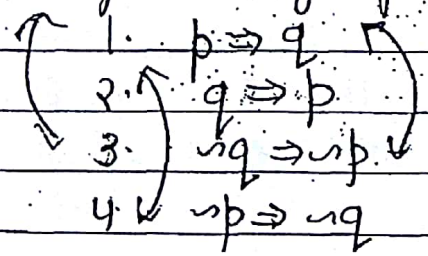 1. p ⇒ q
2. q ⇒ p
3. ~q ⇒ ~p
4. ~p ⇒ ~q